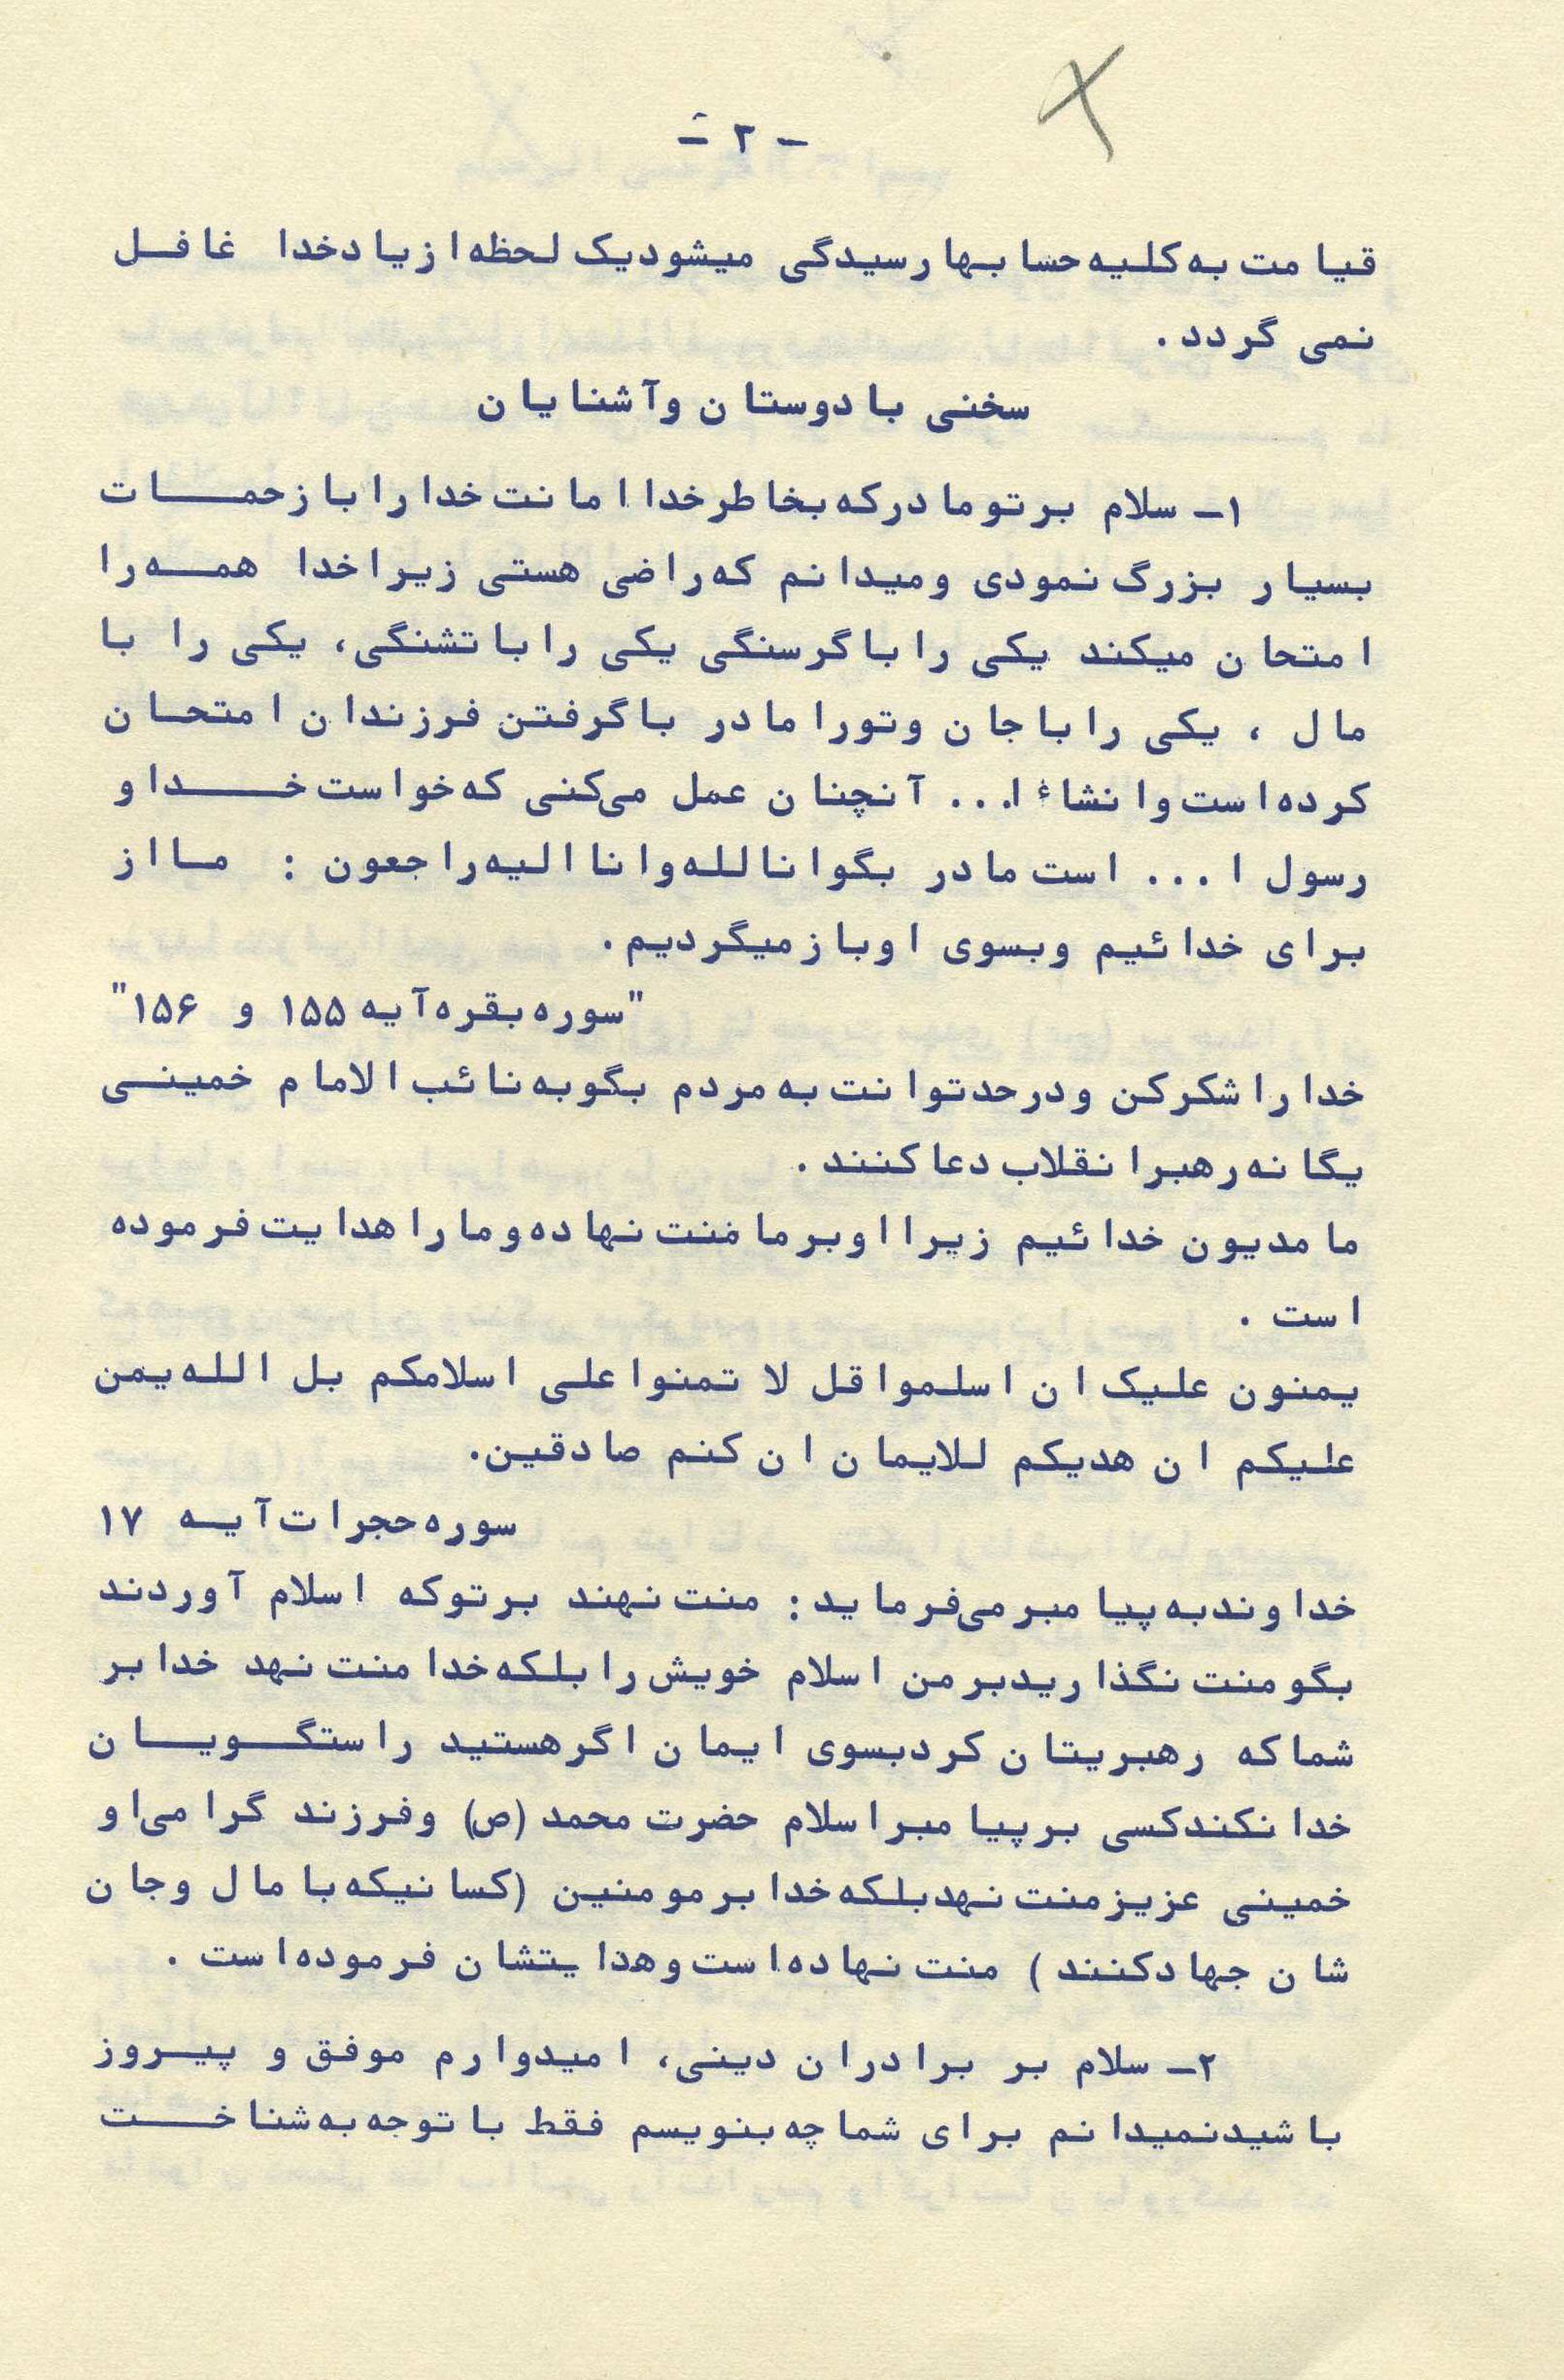 - ۲ -
قیامت به کلیه حسابها رسیدگی میشود یک لحظه از یاد خدا غافل
نمی گردد.
سخنی با دوستان و آشنایان
۱- سلام بر تو مادر که بخاطر خدا امانت خدا را با زحمات
بسیار بزرگ نمودی و میدانم که راضی هستی زیرا خدا همه را
امتحان میکند یکی را با گرسنگی یکی را با تشنگی، یکی را با
مال ، یکی را با جان و تو را مادر با گرفتن فرزندان امتحان
کرده است و انشاءا... آنچنان عمل می‌کنی که خواست خدا و
رسول ا ... است مادر بگو انا لله و انا الیه راجعون : ما از
برای خدائیم و بسوی او باز میگردیم.
"سوره بقره آیه ۱۵۵ و ۱۵۶"
خدا را شکر کن و در حد توانت به مردم بگو به نائب الامام خمینی
یگانه رهبر انقلاب دعا کنند .
ما مدیون خدائیم زیرا او بر ما منت نهاده و ما را هدایت فرموده
است .
یمنون علیک ان اسلموا قل لا تمنوا علی اسلامکم بل الله یمن
علیکم ان هدیکم للایمان ان کنم صادقین.
سوره حجرات آیه ۱۷
خداوند به پیامبر می‌فرماید: منت نهند بر تو که اسلام آوردند
بگو منت نگذارید بر من اسلام خویش را بلکه خدا منت نهد خدا بر
شما که رهبریتان کرد بسوی ایمان اگر هستید راستگویان
خدا نکند کسی بر پیامبر اسلام حضرت محمد (ص) و فرزند گرامی‌او
خمینی عزیز منت نهد بلکه خدا بر مومنین (کسانیکه با مال و جان
شان جهاد کنند ) منت نهاده است و هدایتشان فرموده است .
۲- سلام بر برادران دینی، امیدوارم موفق و پیروز
باشید نمیدانم برای شما چه بنویسم فقط با توجه به شناخت